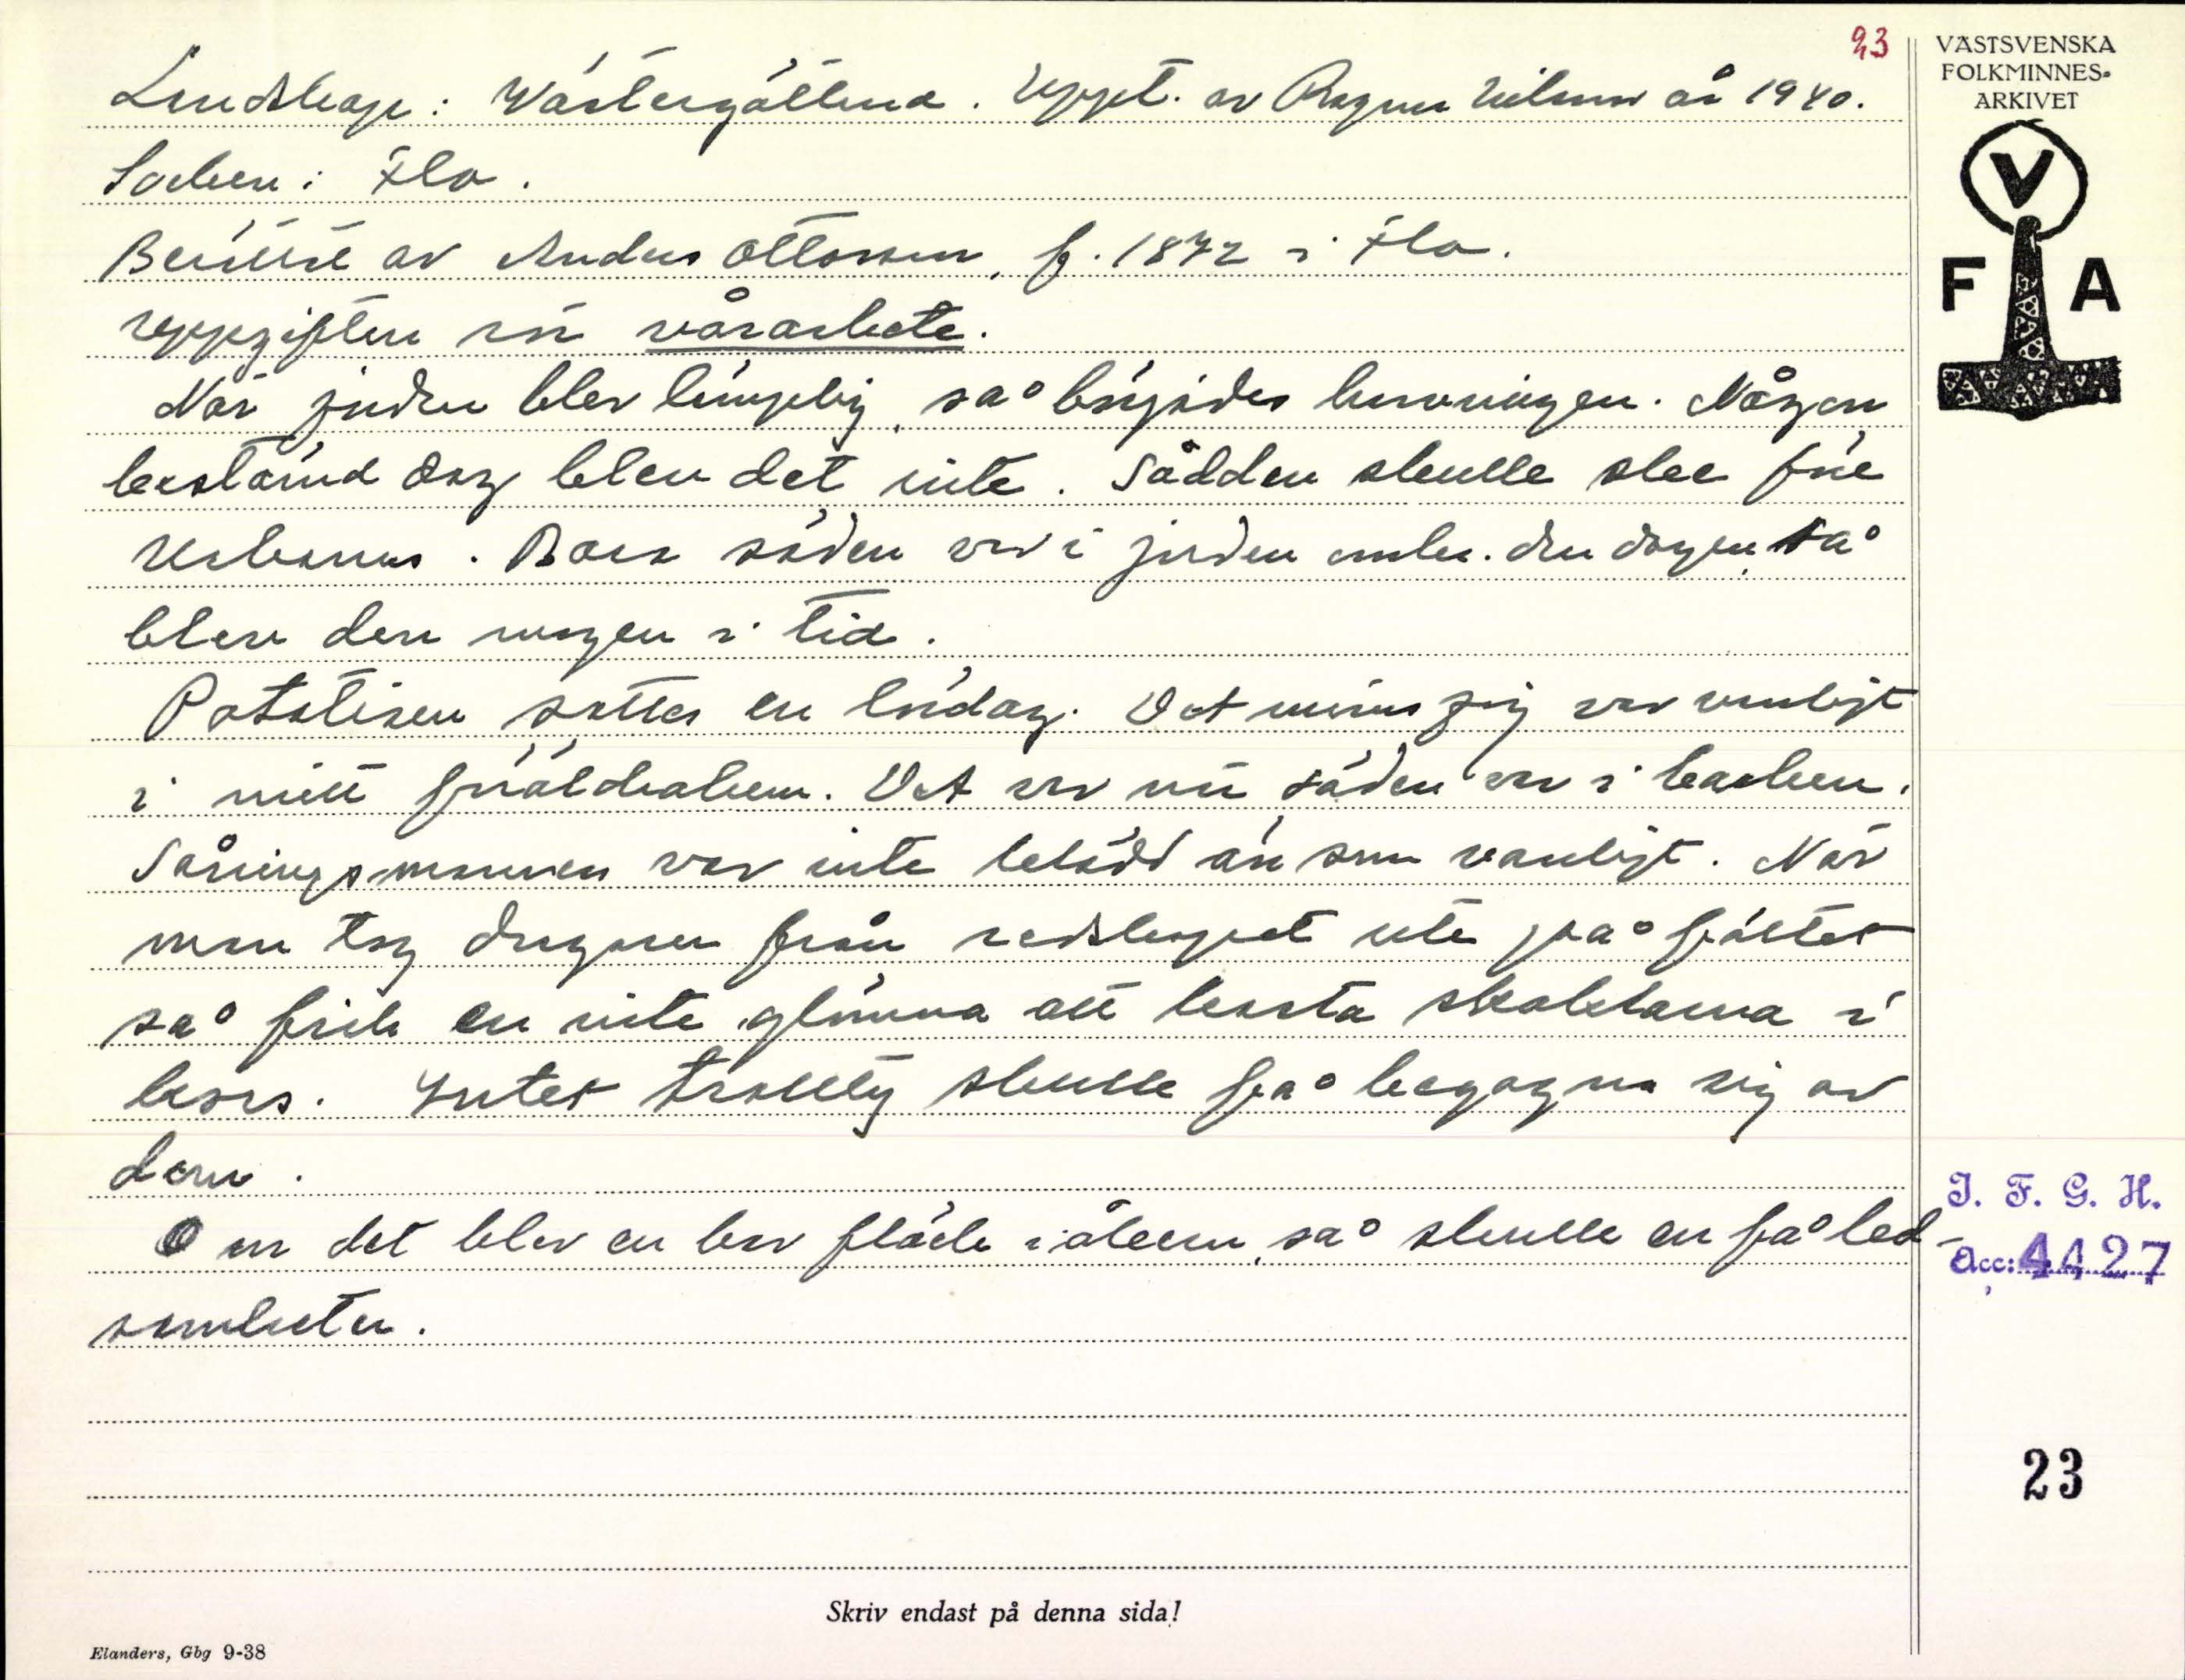 23
VÄSTSVENSKA
FOLKMINNES-
ARKIVET
V
F A
Landskap: Västergötland. Uppt. av Ragnar Nilsson år 1940.
Socken: Flo.
Berättat av Anders Ottosson, f. 1872 i Flo.
uppgifter om vårarbete.
När jorden blev lämplig, så började harvningen. Någon
bestämd dag blev det inte. Sådden skulle ske före
Urbanus. Bara säden var i jorden under den dagen, så
blev den mogen i tid.
Potatisen sattes en lördag. Det minns jag var vanligt
i mitt föräldrahem. Det var när säden var i backen.
Såningsmannen var inte beklädd än som vanligt. När
man tog dragaren från redskapet ute på fältet
så fick en inte glömma att kasta skaklarna i
kors. Intet trolltyg skulle få begagna sig av
dem.
Om det blev en bar fläck i åkern, så skulle en få led-
samheter.
I. F. G. H.
Acc: 4427
23
Skriv endast på denna sida!
Elanders, Gbg 9-38